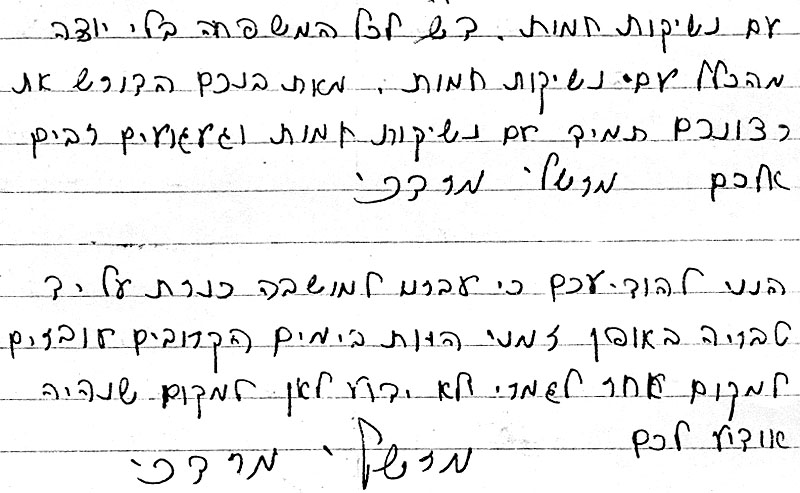 עם נשיקות חמות. דש לכל המשפחה בלי יוצא
מהכלל עם נשיקות חמות, מאת בנכם הדורש את
רצונכם תמיד עם נשיקות חמות וגעגועים רבים
אלכם מרשלי מרדכי
הנני להודיעכם כי עברנו למושבה כנרת על יד
טבריה באופן זמני היות בימים הקרובים עוברים
למקום אחר לגמרי ולא ידוע לאן למקום שנהיה
אודיע לכם
מרשלי מרדכי